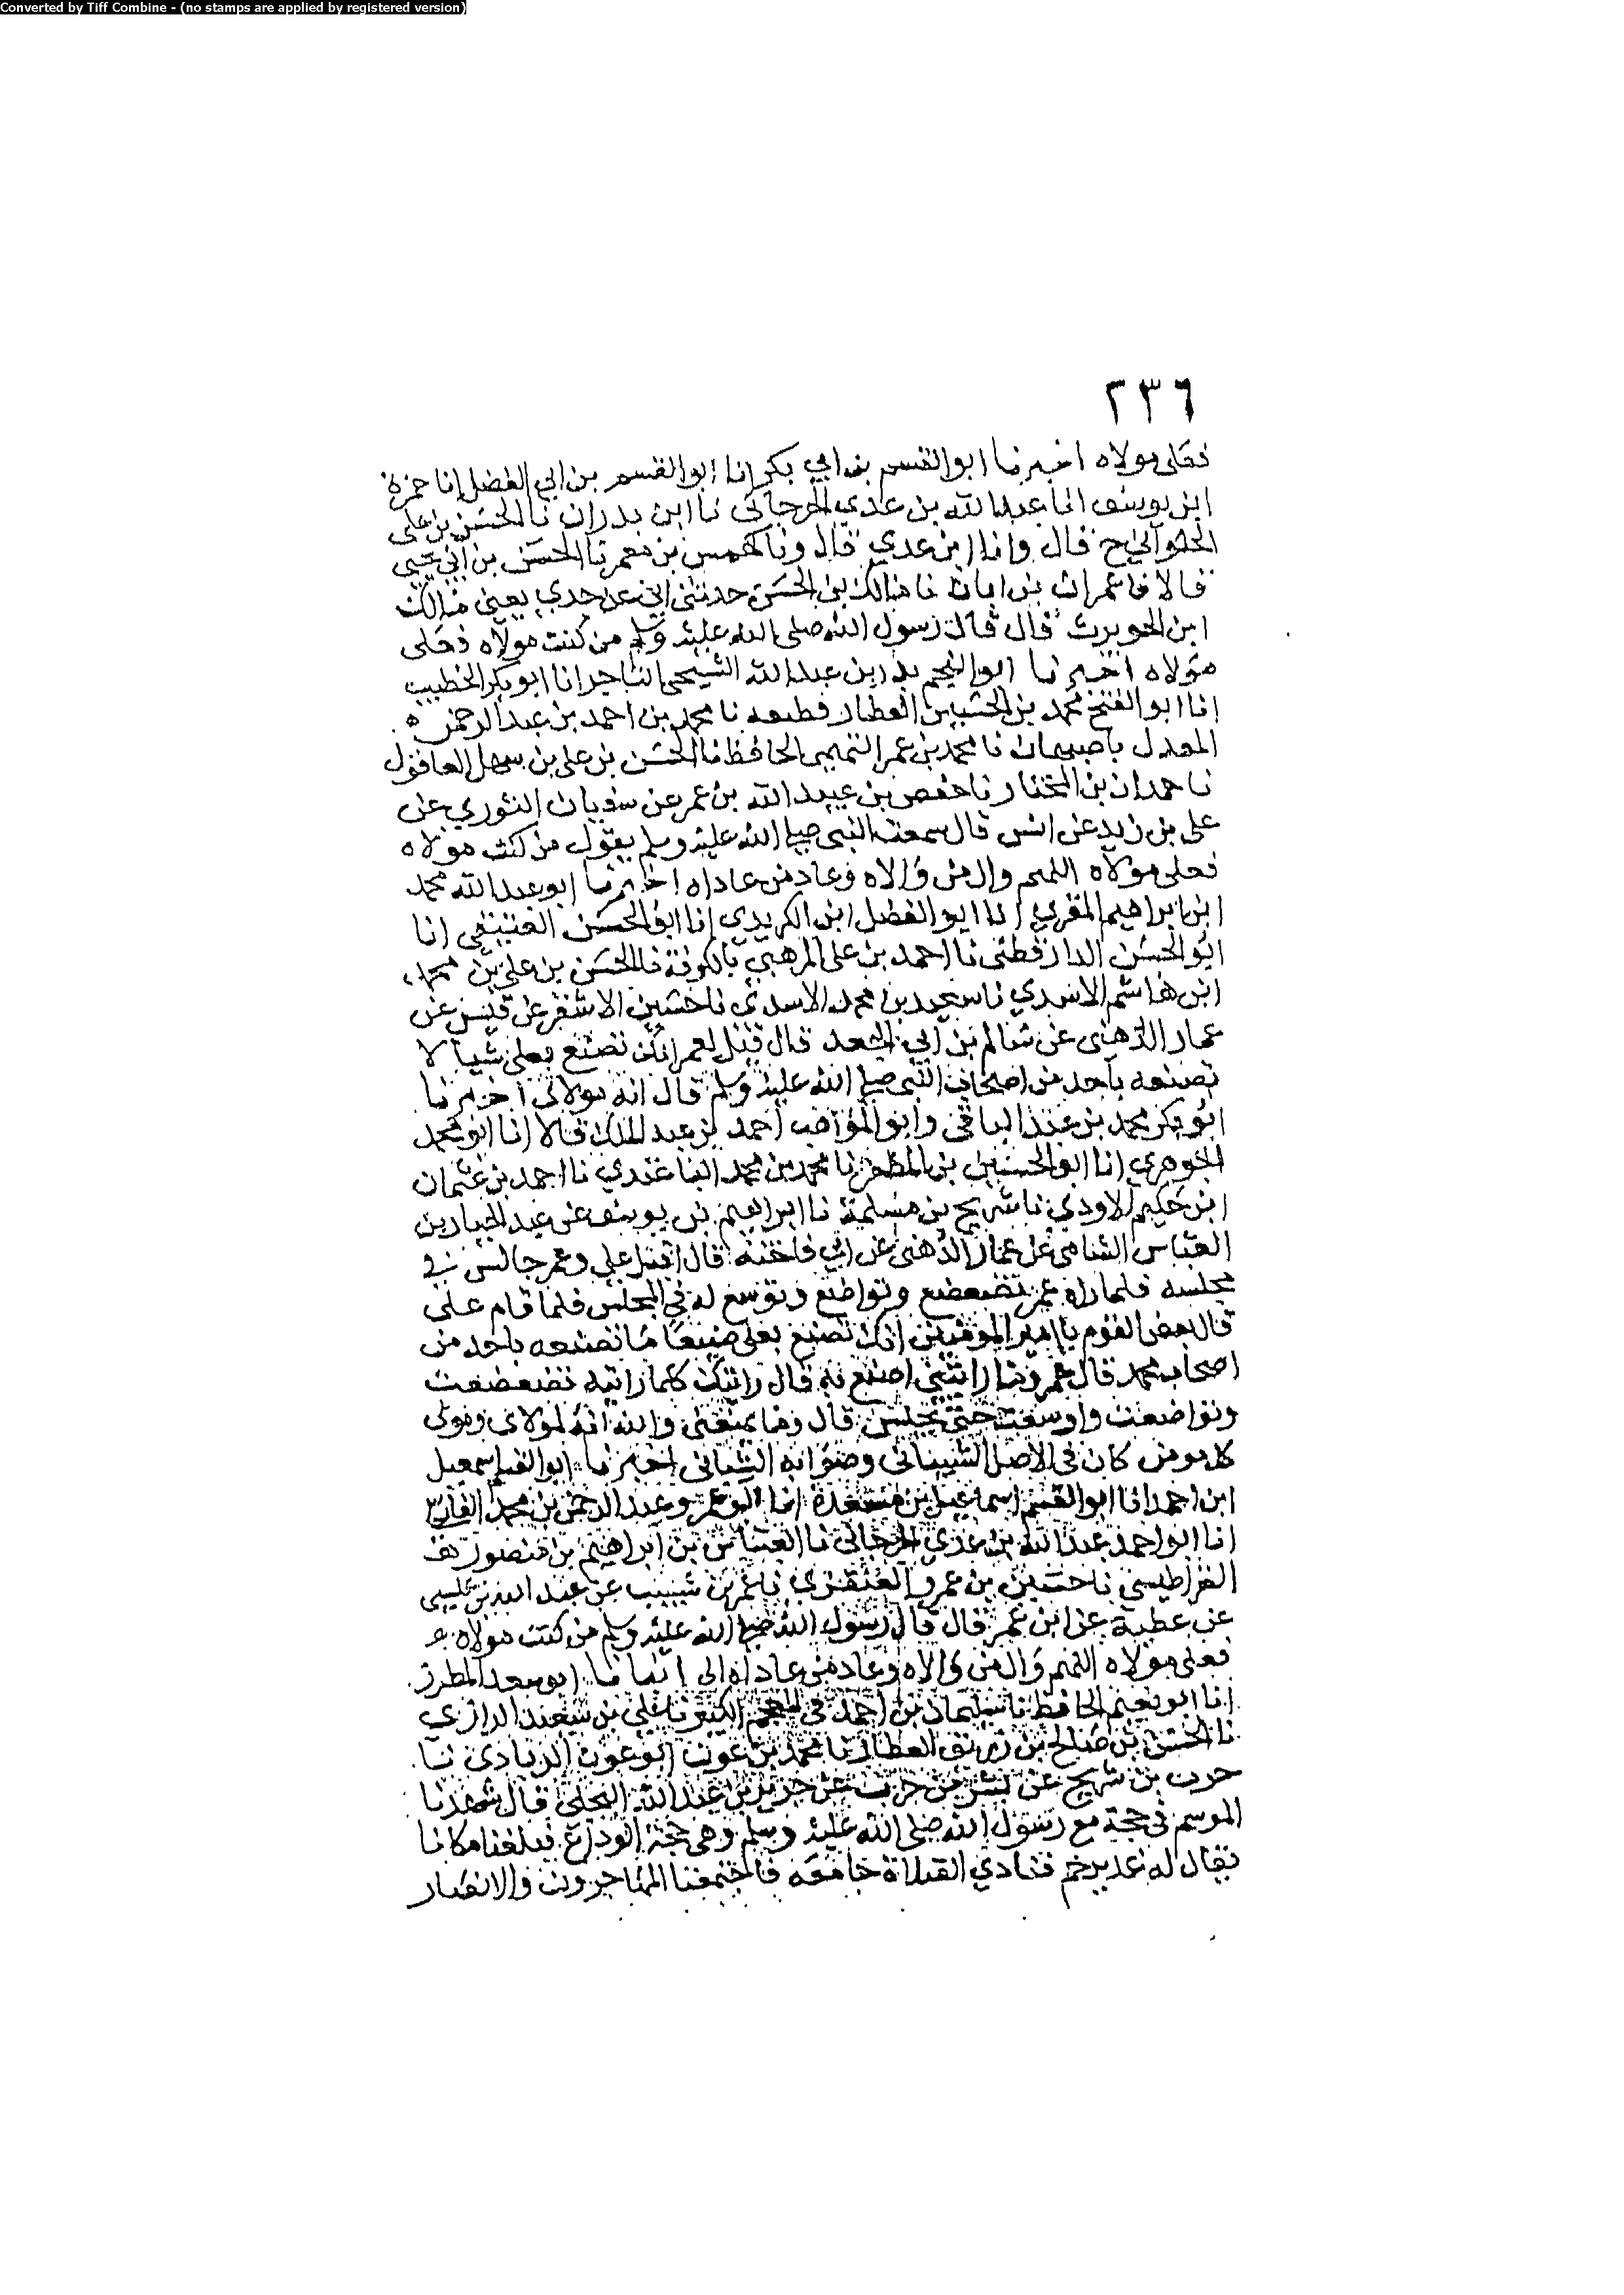 Converted by Tiff Combine - (no stamps are applied by registered version)
٢٣٦
فعلى مولاه اخبرنا ابو القسم بن ابي بكر انا ابو القسم بن ابي الفضل انا حمزة
ابن يوسف انا عبد الله بن عدي الجرجاني نا ابن بدران نا الحسن بن على
الحلواني ح قال وانا ابن عدي قال ونا كهمس بن معمر نا الحسن بن ابي يحيى
قالا نا عمران بن ابان نا مالك بن الحسن حدثنى ابي عن جدي يعنى مالك
ابن الحويرث قال قال رسول الله صلى الله عليه وسلم من كنت مولاه فعلى
مولاه اخبرنا ابو النجم بدر بن عبد الله الشيحى التاجر انا ابو بكر الخطيب
انا ابو الفتح محمد بن الحسين العطار قطيط نا محمد بن احمد بن عبد الرحمن
المعدل باصبهان نا محمد بن عمر التميمى الحافظ نا الحسن بن على بن سهل العاقول
نا حمدان بن المختار نا حفص بن عبيد الله بن عمر عن سفيان الثوري عن
على بن زيد عن انس قال سمعت النبى صلى الله عليه وسلم يقول من كنت مولاه
فعلى مولاه اللهم وال من والاه وعاد من عاداه اخبرنا ابو عبد الله محمد
ابن ابراهيم المقري انا ابو الفضل ابن الكريدي انا ابو الحسن العتيقى انا
ابو الحسن الدارقطنى نا احمد بن على المرهبي بالكوفة نا الحسن بن على بن محمد
ابن هاشم الاسدي نا سعيد بن محمد الاسدي نا حسين الاشقر عن قيس عن
عمار الدهنى عن سالم بن ابي الجعد قال قيل لعمر انك تصنع بعلى شيا لا
تصنعه باحد من اصحاب النبى صلى الله عليه وسلم قال انه مولاى اخبرنا
ابو بكر محمد بن عبد الباقى وابو المواهب احمد بن عبد الملك قالا انا ابو محمد
الجوهري انا ابو الحسين بن المظفر نا محمد بن محمد الباغندي نا احمد بن عثمان
ابن حكيم الاودي نا شريح بن مسلمة نا ابراهيم بن يوسف عن عبد الجبار بن
العباس الشامى عن عمار الدهنى عن ابي فاختة قال اقبل على وعمر جالس في
مجلسه فلما راه عمر تضعضع وتواضع وتوسع له في المجلس فلما قام على
قال بعض القوم يا امير المومنين انك تصنع بعلى صنيعا ما تصنعه باحد من
اصحاب محمد قال عمر وما رايتنى اصنع به قال رايتك كلما رايته تضعضعت
وتواضعت واوسعت حتى يجلس قال وما يمنعنى والله انه لمولاى ومولى
كل مومن كان في الاصل الشيبانى وصوابه الشبانى اخبرنا ابو القسم اسمعيل
ابن احمد انا ابو القسم اسماعيل بن مسعدة انا ابو عمرو عبد الرحمن بن محمد الفارسى
انا ابو احمد عبد الله بن عدي الجرجانى نا العباس بن ابراهيم بن منصور
القراطيسى نا حسين بن عمرو العنقزي نا عمر بن شبيب عن عبد الله بن عيسى
عن عطية عن ابن عمر قال قال رسول الله صلى الله عليه وسلم من كنت مولاه
فعلى مولاه اللهم وال من والاه وعاد من عاداه الى انبانا ابو سعد المطرز
انا ابو نعيم الحافظ نا سليمان بن احمد في المعجم الكبير نا على بن سعيد الرازي
نا الحسن بن صالح بن زريق العطار نا محمد بن عون ابو عون الزيادى نا
حرب بن شريح عن بشر بن حرب عن جرير بن عبد الله البجلى قال شهدنا
الموسم في حجة مع رسول الله صلى الله عليه وسلم وهى حجة الوداع فبلغنا مكانا
يقال له غدير خم فنادي الصلاة جامعة فاجتمعنا المهاجرون والانصار